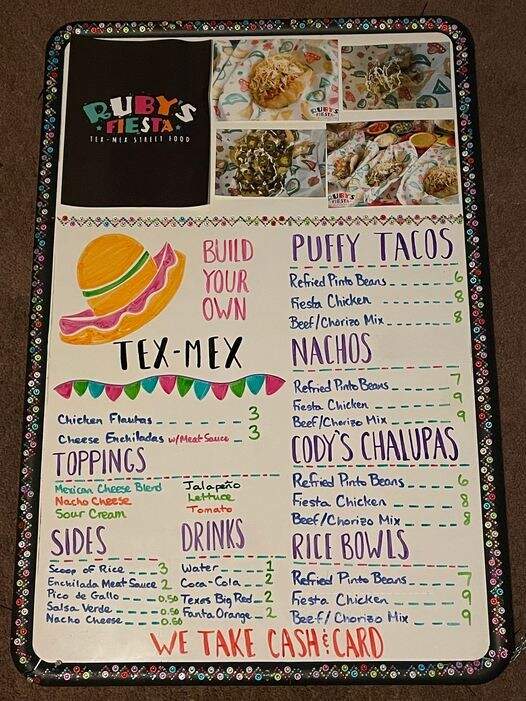 RUBY'S
FIESTA
TEX-MEX STREET FOOD
RUBY'S
FIESTA
BUILD
YOUR
OWN
TEX-MEX
Chicken Flautas 3
Cheese Enchiladas w/Meat Sauce 3
TOPPINGS
Mexican Cheese Blend
Nacho Cheese
Sour Cream
Jalapeño
Lettuce
Tomato
SIDES
Scoop of Rice 3
Enchilada Meat Sauce 2
Pico de Gallo 0.50
Salsa Verde 0.50
Nacho Cheese 0.50
DRINKS
Water 1
Coca-Cola 2
Texas Big Red 2
Fanta Orange 2
PUFFY TACOS
Refried Pinto Beans 6
Fiesta Chicken 8
Beef/Chorizo Mix 8
NACHOS
Refried Pinto Beans 7
Fiesta Chicken 9
Beef/Chorizo Mix 9
CODY'S CHALUPAS
Refried Pinto Beans 6
Fiesta Chicken 8
Beef/Chorizo Mix 8
RICE BOWLS
Refried Pinto Beans 7
Fiesta Chicken 9
Beef/Chorizo Mix 9
WE TAKE CASH & CARD